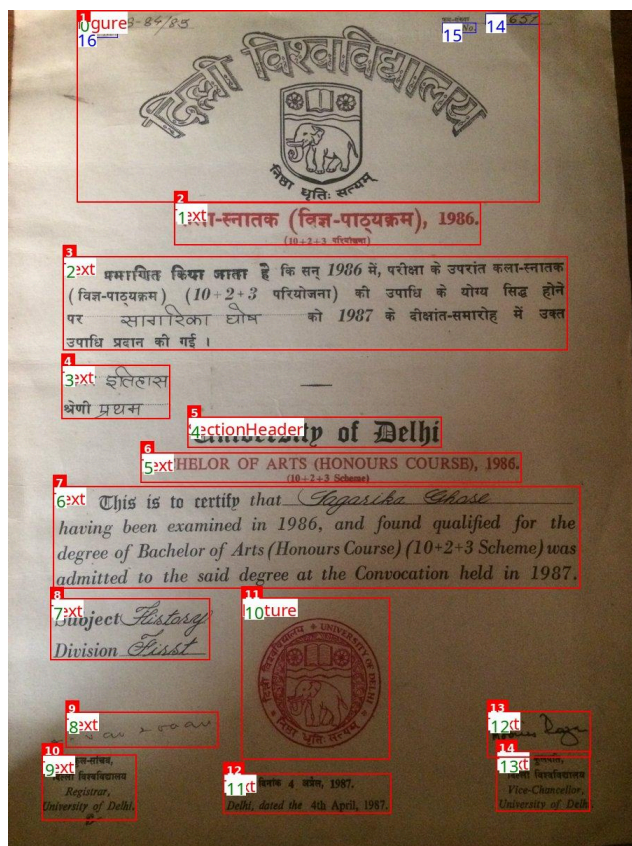 दिल्ली विश्वविद्यालय
निष्ठा धृतिः सत्यम्
कला-स्नातक (विज्ञ-पाठ्यक्रम), 1986.
(10+2+3 परियोजना)
प्रमाणित किया जाता है कि सन् 1986 में, परीक्षा के उपरांत कला-स्नातक
(विज्ञ-पाठ्यक्रम) (10+2+3 परियोजना) की उपाधि के योग्य सिद्ध होने
पर सागारिका घोष को 1987 के दीक्षांत-समारोह में उक्त
उपाधि प्रदान की गई।
इतिहास
श्रेणी प्रथम
University of Delhi
BACHELOR OF ARTS (HONOURS COURSE), 1986.
(10+2+3 Scheme)
This is to certify that Sagarika Ghose
having been examined in 1986, and found qualified for the
degree of Bachelor of Arts (Honours Course) (10+2+3 Scheme) was
admitted to the said degree at the Convocation held in 1987.
Subject History
Division First
दिल्ली विश्वविद्यालय UNIVERSITY OF DELHI
निष्ठा धृतिः सत्यम्
कुल-सचिव,
दिल्ली विश्वविद्यालय
Registrar,
University of Delhi.
दिनांक 4 अप्रैल, 1987.
Delhi, dated the 4th April, 1987.
कुलपति,
दिल्ली विश्वविद्यालय
Vice-Chancellor,
University of Delhi.